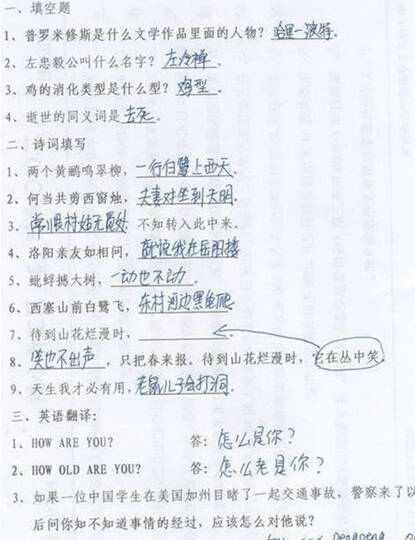 一、填空题
1、普罗米修斯是什么文学作品里面的人物？哈里-波特。
2、左忠毅公叫什么名字？左冷禅.
3、鸡的消化类型是什么型？鸡型.
4、逝世的同义词是去死.
二、诗词填写
1、两个黄鹂鸣翠柳，一行白鹭上西天.
2、何当共剪西窗烛，夫妻对坐到天明.
3、常恨村姑无觅处 不知转入此中来。
4、洛阳亲友如相问，就说我在岳阳楼
5、蚍蜉撼大树，一动也不动.
6、西塞山前白鹭飞，东村河边黑龟爬
7、待到山花烂漫时，
8、笑也不出声，只把春来报。待到山花烂漫时，它在丛中笑.
9、天生我才必有用，老鼠儿子会打洞.
三、英语翻译：
1、HOW ARE YOU? 答：怎么是你？
2、HOW OLD ARE YOU? 答：怎么老是你？
3、如果一位中国学生在美国加州目睹了一起交通事故，警察来了以
后问你知不知道事情的经过，应该怎么对他说？